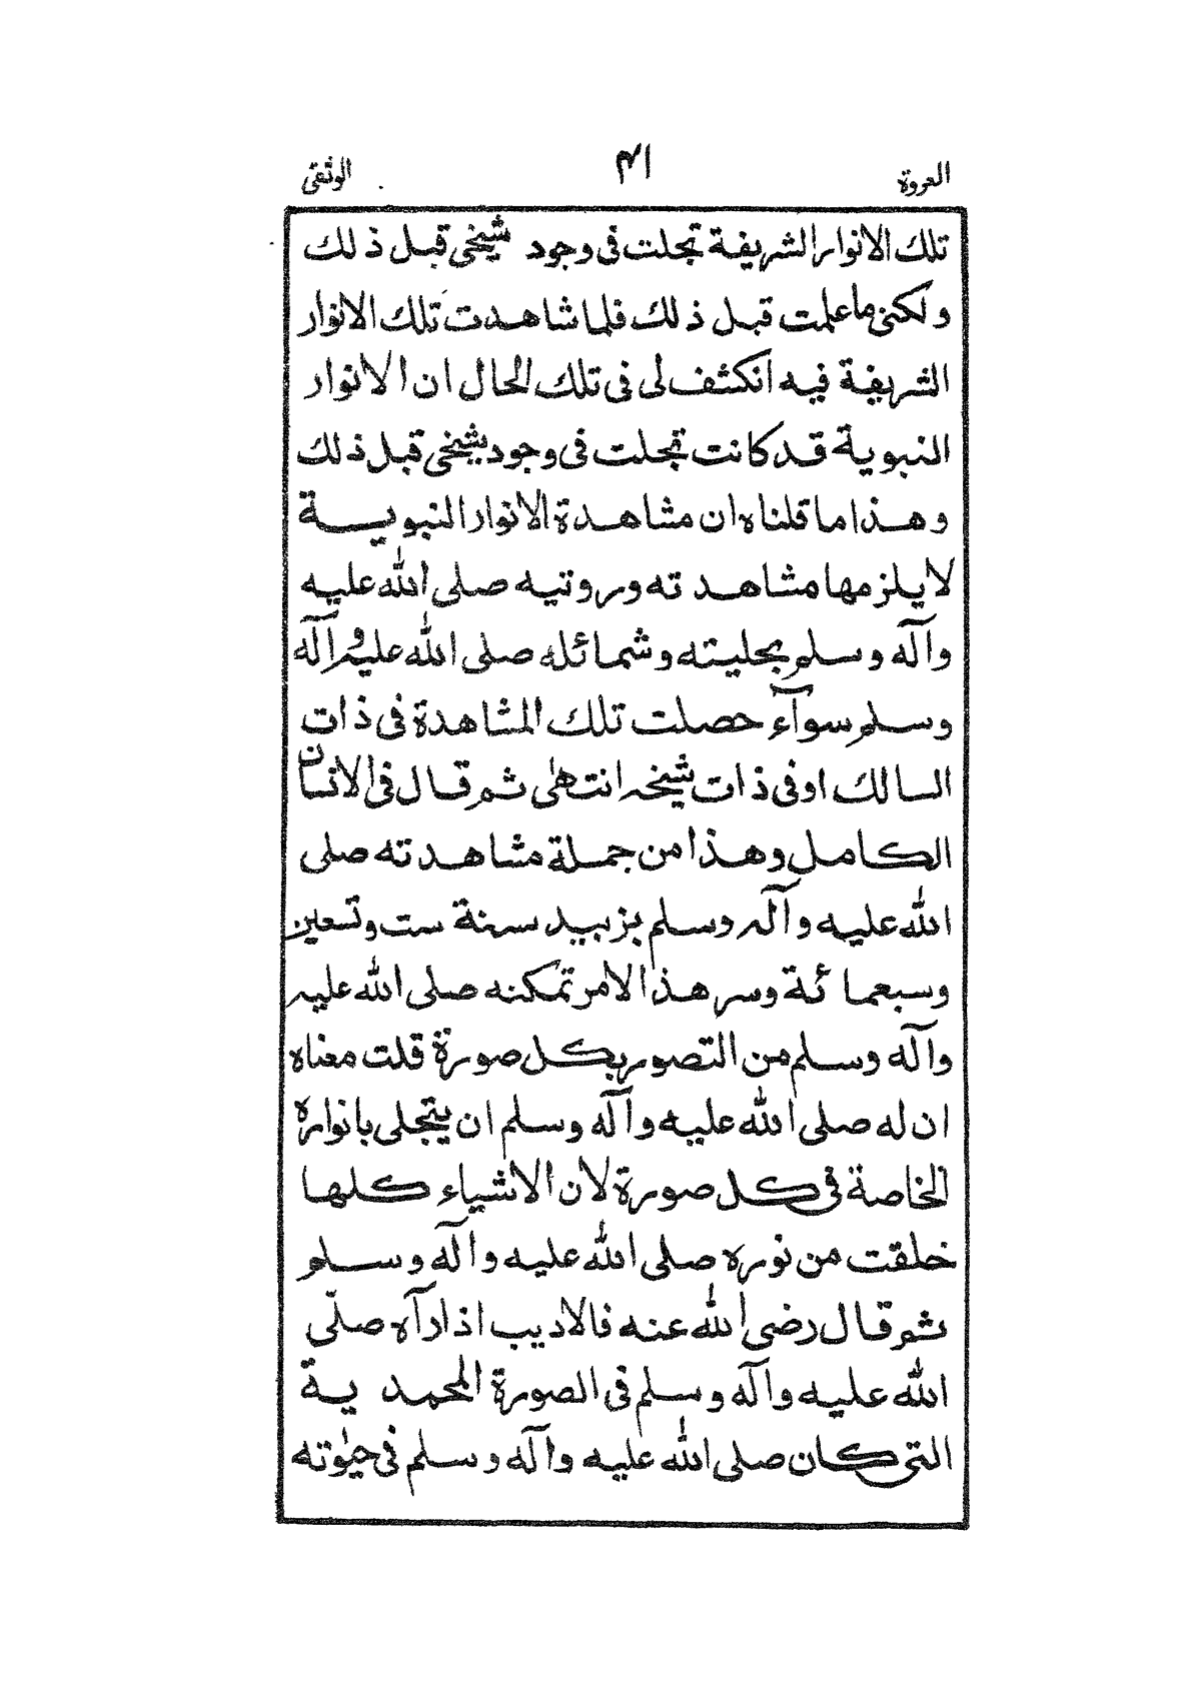 العروة ١٤ الوثقى
تلك الانوار الشريفة تجلت فى وجود شيخى قبل ذلك
ولكنى ما علمت قبل ذلك فلما شاهدت تلك الانوار
الشريفة فيه انكشف لى فى تلك الحال ان الانوار
النبوية قد كانت تجلت فى وجود شيخى قبل ذلك
وهذا ما قلناه ان مشاهدة الانوار النبوية
لا يلزمها مشاهدته وروئيه صلى الله عليه
وآله وسلم بحليته وشمائله صلى الله عليه وآله
وسلم سوآء حصلت تلك المشاهدة فى ذات
السالك او فى ذات شيخه انتهى ثم قال فى الانسان
الكامل وهذا من جملة مشاهدته صلى
الله عليه وآله وسلم بزبيد سنة ست وتسعين
وسبعمائة وسر هذا الامر تمكنه صلى الله عليه
وآله وسلم من التصور بكل صورة قلت معناه
ان له صلى الله عليه وآله وسلم ان يتجلى بانواره
الخاصة فى كل صورة لان الاشياء كلها
خلقت من نوره صلى الله عليه وآله وسلم
ثم قال رضى الله عنه فالاديب اذا رآه صلّى
الله عليه وآله وسلم فى الصورة المحمدية
التى كان صلى الله عليه وآله وسلم فى حيوٰته